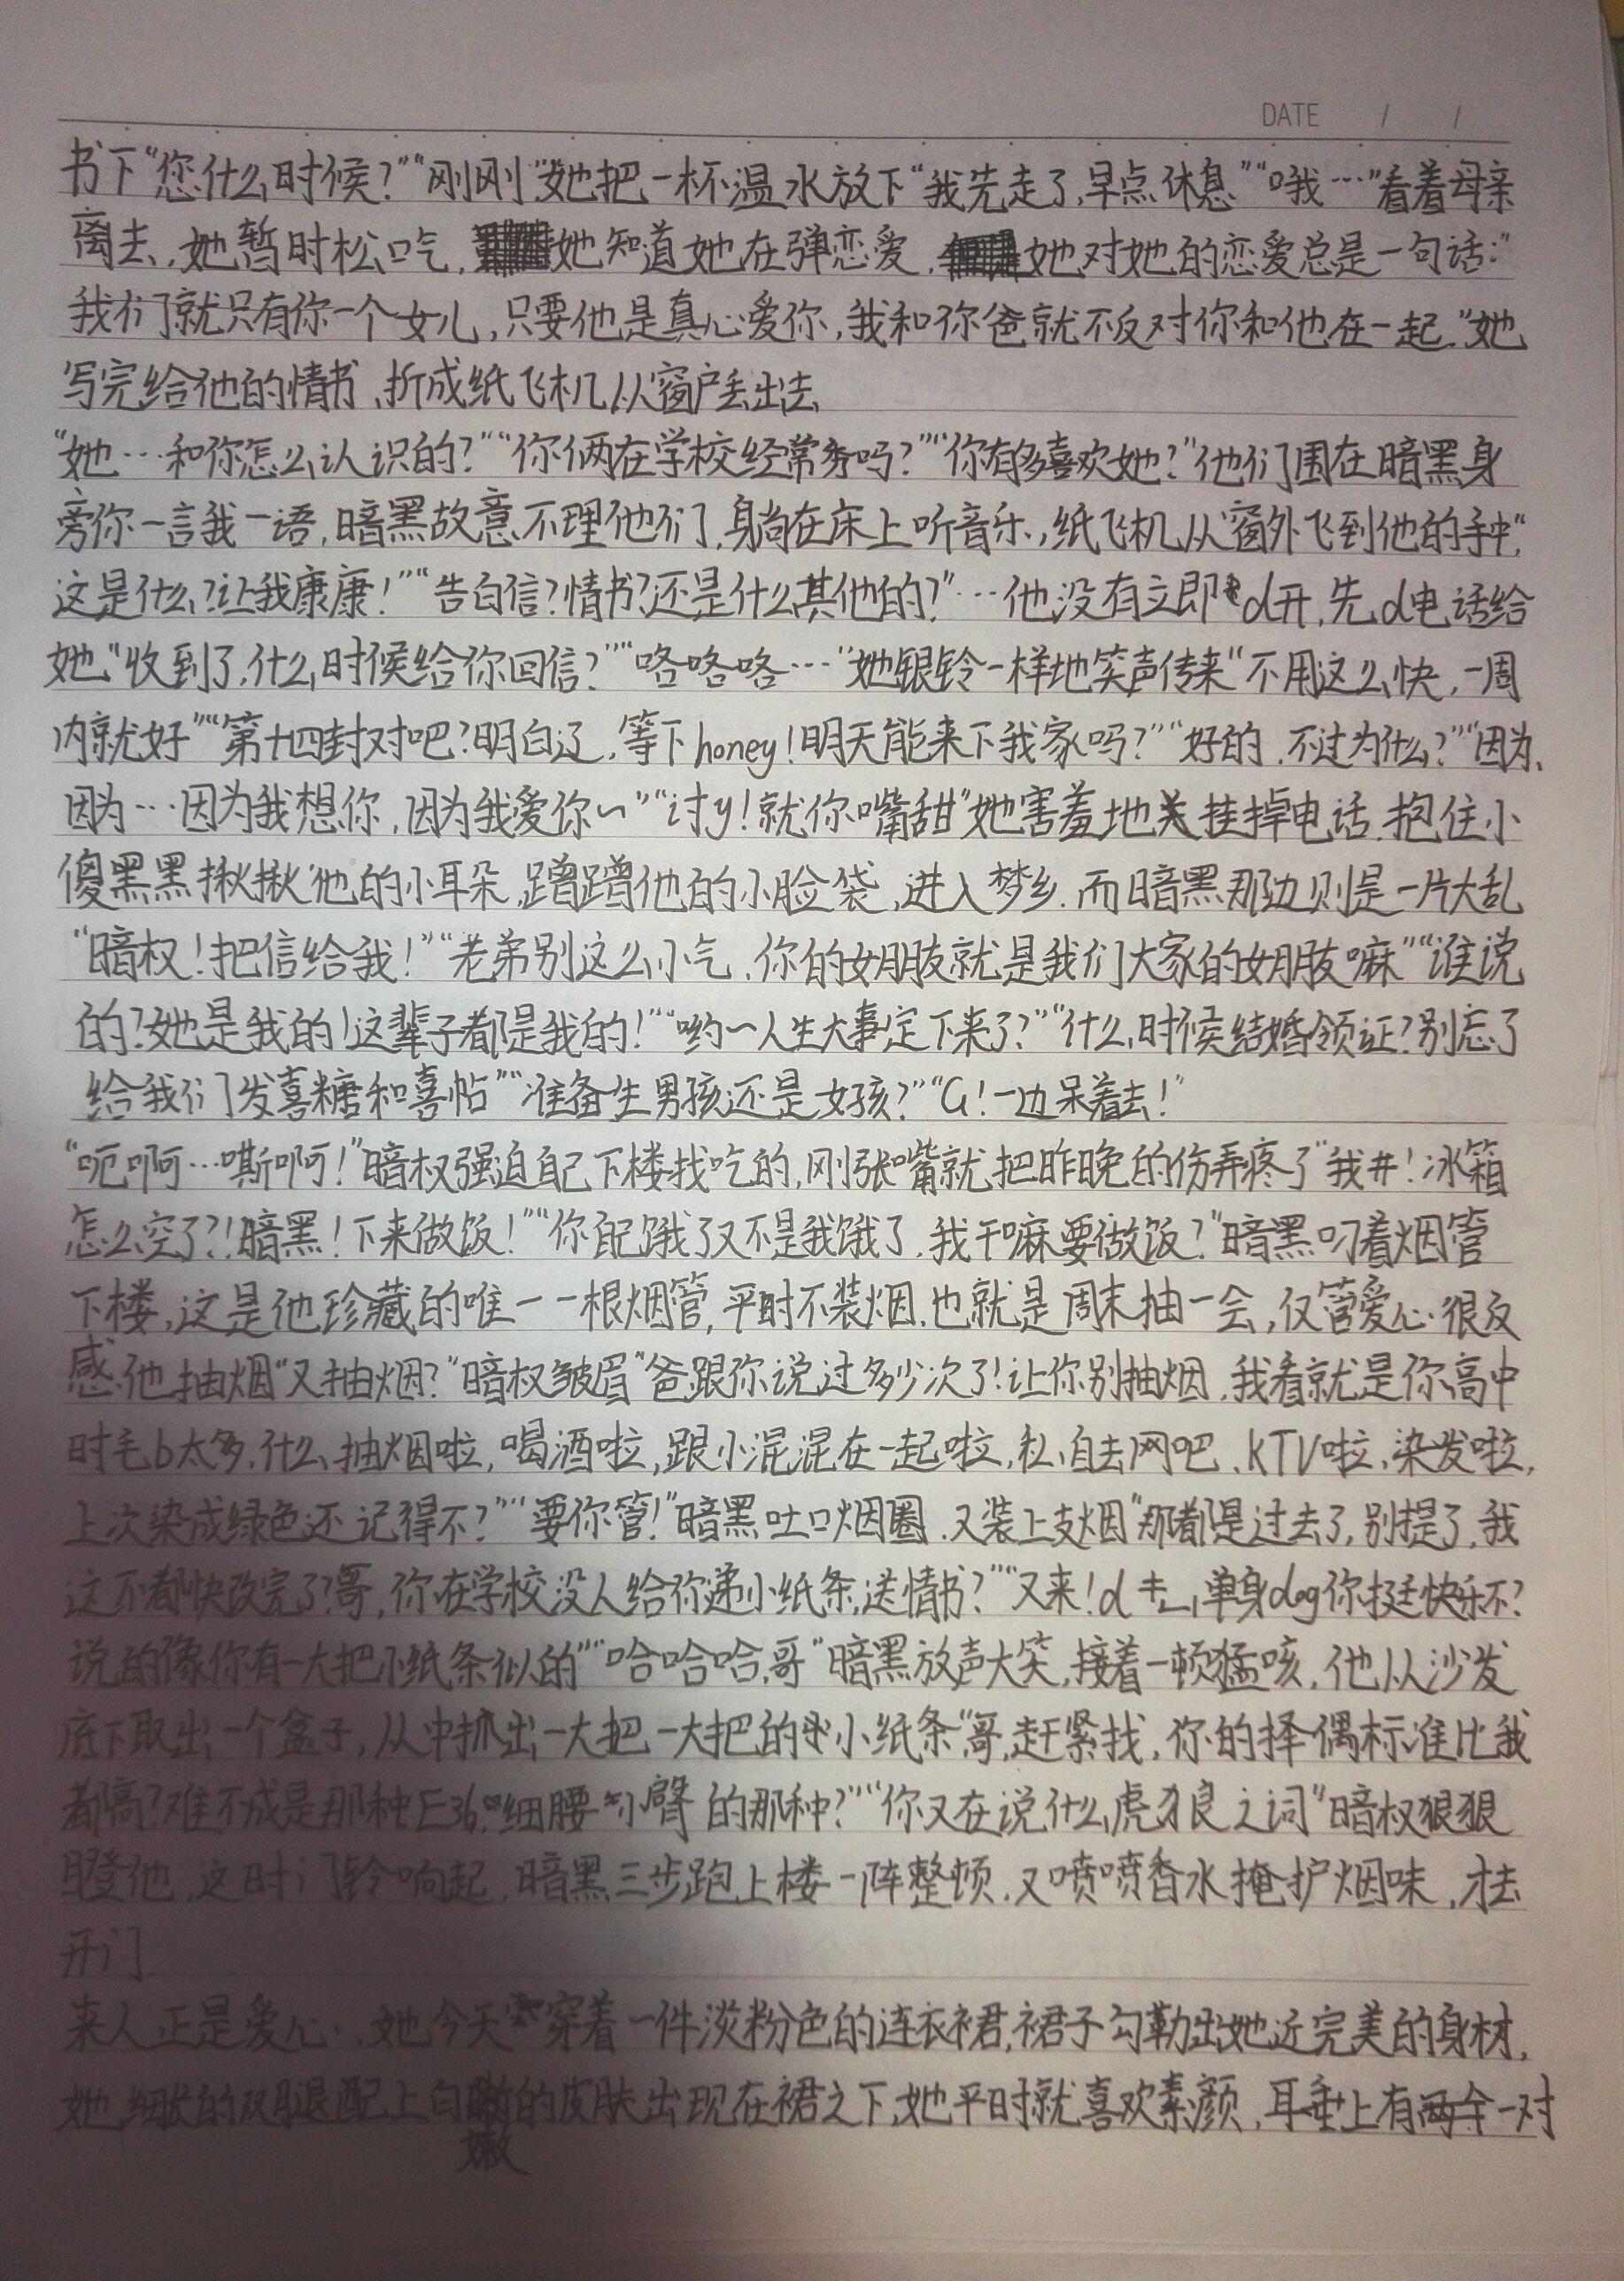 DATE / /
书下“您什么时候?”“刚刚”她把一杯温水放下“我先走了,早点休息”“哦…”看着母亲
离去,她暂时松口气,她知道她在弹恋爱,她对她的恋爱总是一句话:“
我们就只有你一个女儿,只要他是真心爱你,我和你爸就不反对你和他在一起.”她
写完给他的情书,折成纸飞机从窗户丢出去
“她…和你怎么认识的?”“你俩在学校经常秀吗?”“你有多喜欢她?”他们围在暗黑身
旁你一言我一语,暗黑故意不理他们,躺在床上听音乐,纸飞机从窗外飞到他的手中“
这是什么?让我康康!”“告白信?情书?还是什么其他的?”…他没有立即d开,先d电话给
她“收到了,什么时候给你回信?”“咯咯咯…”她银铃一样地笑声传来“不用这么快,一周
内就好”“第十四封对吧?明白辽,等下honey!明天能来下我家吗?”“好的,不过为什么?”“因为、
因为…因为我想你,因为我爱你~”“讨y!就你嘴甜”她害羞地挂掉电话,抱住小
傻黑黑揪揪他的小耳朵,蹭蹭他的小脸袋,进入梦乡.而暗黑那边则是一片大乱
“暗权!把信给我!”“老弟别这么小气,你的女朋友就是我们大家的女朋友嘛”“谁说
的?她是我的!这辈子都是我的!”“哟~人生大事定下来了?”“什么时候结婚领证?别忘了
给我们发喜糖和喜帖”“准备生男孩还是女孩?”“G!一边呆着去!”
“呃啊…嘶啊!”暗权强迫自己下楼找吃的,刚张嘴就把昨晚的伤弄疼了“我#!冰箱
怎么空了?!暗黑!下来做饭!”“你饿了又不是我饿了,我干嘛要做饭?”暗黑叼着烟管
下楼,这是他珍藏的唯一一根烟管,平时不装烟,也就是周末抽一会,仅管爱心很反
感他抽烟“又抽烟?”暗权皱眉“爸跟你说过多少次了!让你别抽烟,我看就是你高中
时毛b太多,什么抽烟啦,喝酒啦,跟小混混在一起啦,私自去网吧、KTV啦、染发啦,
上次染成绿色还记得不?”“要你管!”暗黑吐口烟圈,又装上支烟“那都是过去了,别提了,我
这不都快改完了?哥,你在学校没人给你递小纸条,送情书?”“又来!d 单身dog你挺快乐不?
说的像你有一大把小纸条似的”“哈哈哈,哥”暗黑放声大笑,接着一顿猛咳,他从沙发
底下取出一个盒子,从中抓出一大把一大把的小纸条“哥,赶紧找,你的择偶标准比我
都高?难不成是那种E36细腰小臀的那种?”“你又在说什么虎狼之词”暗权狠狠
瞪他,这时门铃响起,暗黑三步跑上楼一阵整顿,又喷喷香水掩护烟味,才去
开门
来人正是爱心,她今天穿着一件淡粉色的连衣裙,裙子勾勒出她近完美的身材,
她细长的双腿配上白嫩的皮肤出现在裙之下,她平时就喜欢素颜,耳垂上有一对